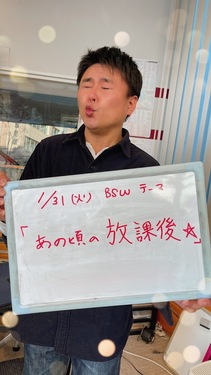 1/31(火) BSW テーマ
「あの頃の放課後☆」